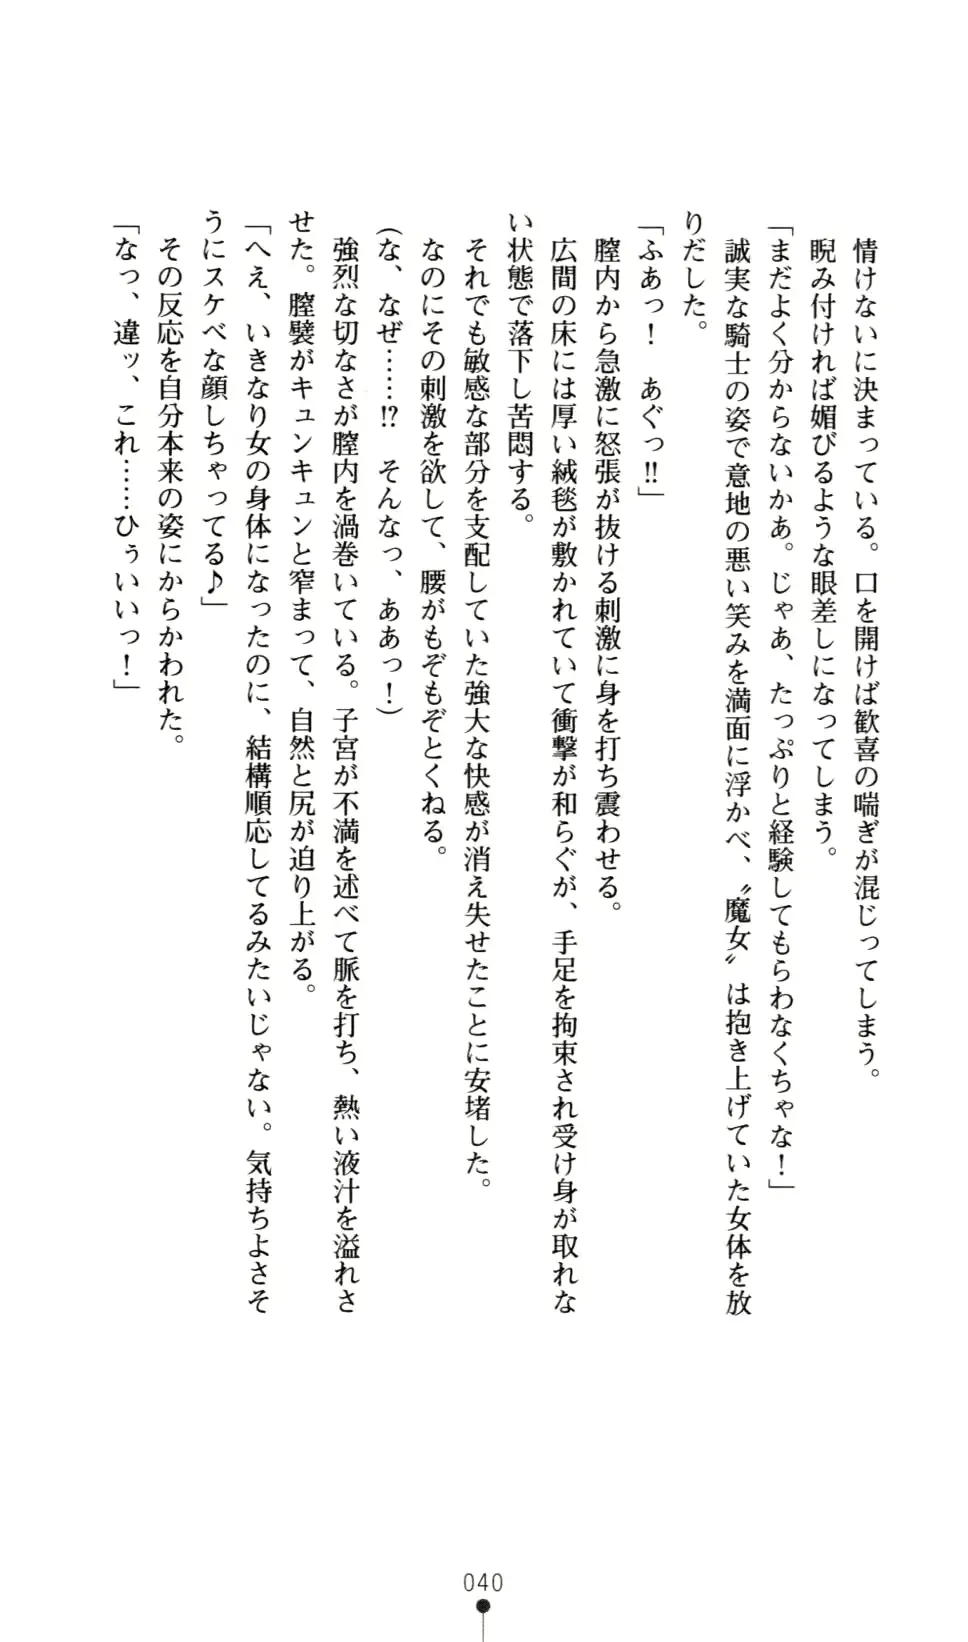 情けないに決まっている。口を開けば歓喜の喘ぎが混じってしまう。
睨み付ければ媚びるような眼差しになってしまう。
「まだよく分からないかあ。じゃあ、たっぷりと経験してもらわなくちゃな！」
誠実な騎士の姿で意地の悪い笑みを満面に浮かべ、〝魔女〟は抱き上げていた女体を放
りだした。
「ふあっ！　あぐっ!!」
膣内から急激に怒張が抜ける刺激に身を打ち震わせる。
広間の床には厚い絨毯が敷かれていて衝撃が和らぐが、手足を拘束され受け身が取れな
い状態で落下し苦悶する。
それでも敏感な部分を支配していた強大な快感が消え失せたことに安堵した。
なのにその刺激を欲して、腰がもぞもぞとくねる。
(な、なぜ……!?　そんなっ、ああっ！)
強烈な切なさが膣内を渦巻いている。子宮が不満を述べて脈を打ち、熱い液汁を溢れさ
せた。膣襞がキュンキュンと窄まって、自然と尻が迫り上がる。
「へえ、いきなり女の身体になったのに、結構順応してるみたいじゃない。気持ちよさそ
うにスケベな顔しちゃってる♪」
その反応を自分本来の姿にからかわれた。
「なっ、違ッ、これ……ひぅいいっ！」
040